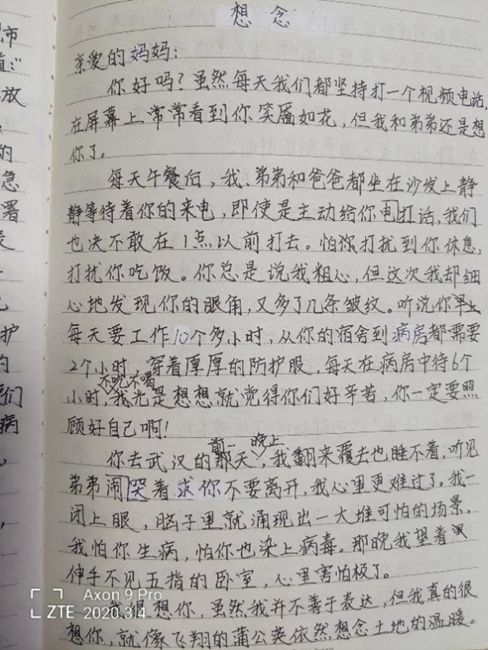 想念
亲爱的妈妈：
你好吗？虽然每天我们都坚持打一个视频电话，
在屏幕上常常看到你笑靥如花，但我和弟弟还是想
你了。
每天午餐后，我、弟弟和爸爸都坐在沙发上静
静等待着你的来电，即使是主动给你电打话，我们
也决不敢在1点以前打去。怕你打扰到你休息，
打扰你吃饭。你总是说我粗心，但这次我却细
心地发现你的眼角，又多了几条皱纹。听说你
每天要工作10个多小时，从你的宿舍到病房都需要
2个小时，穿着厚厚的防护服，每天在病房中待6个
不吃不喝
小时，我光是想想就觉得你们好辛苦，你一定要照
顾好自己啊！
前一晚上
你去武汉的那天，我翻来覆去也睡不着，听见
弟弟闹哭着求你不要离开，我心里更难过了。我一
闭上眼，脑子里就涌现出一大堆可怕的场景，
我怕你生病，怕你也染上病毒。那晚我望着黑
伸手不见五指的卧室，心里害怕极了。
我很想你，虽然我并不善于表达，但我真的很
想你，就像飞翔的蒲公英依然想念土地的温暖。
市
放
的
急
署
护
的
们
病
Axon 9 Pro
ZTE 2020.3.4